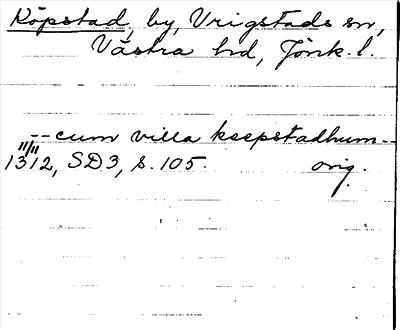 Köpstad, by, Vrigstads sn,
Västra hd, Jönk. l.
-- cum villa kœpstadhum --
11/11
1312, SD3, s. 105. orig.